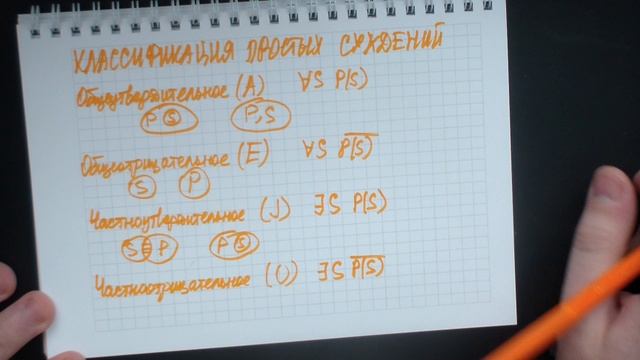 КЛАССИФИКАЦИЯ ПРОСТЫХ СУЖДЕНИЙ
Общеутвердительное (A) ∀S P(S)
P S P,S
Общеотрицательное (E) ∀S P̅(̅S̅)̅
S P
Частноутвердительное (J) ∃S P(S)
S P P S
Частноотрицательное (O) ∃S P̅(̅S̅)̅